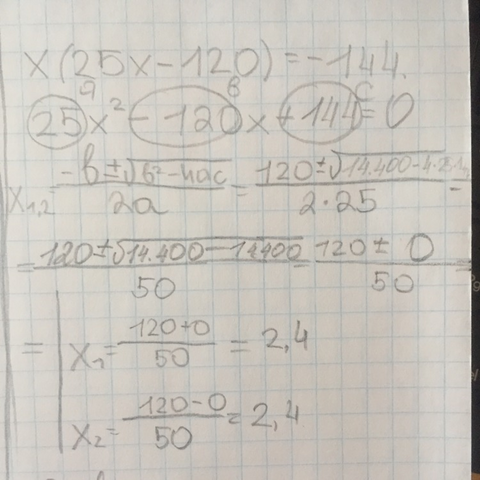 x(25x-120)=-144.
a в c
25x²-120x+144=0
x₁,₂=(-в±√(в²-4ac))/2a=(120±√(14.400-4·25·
=(120±√(14.400-14400))/50=(120±0)/50=
= x₁=(120+0)/50=2,4
x₂=(120-0)/50=2,4